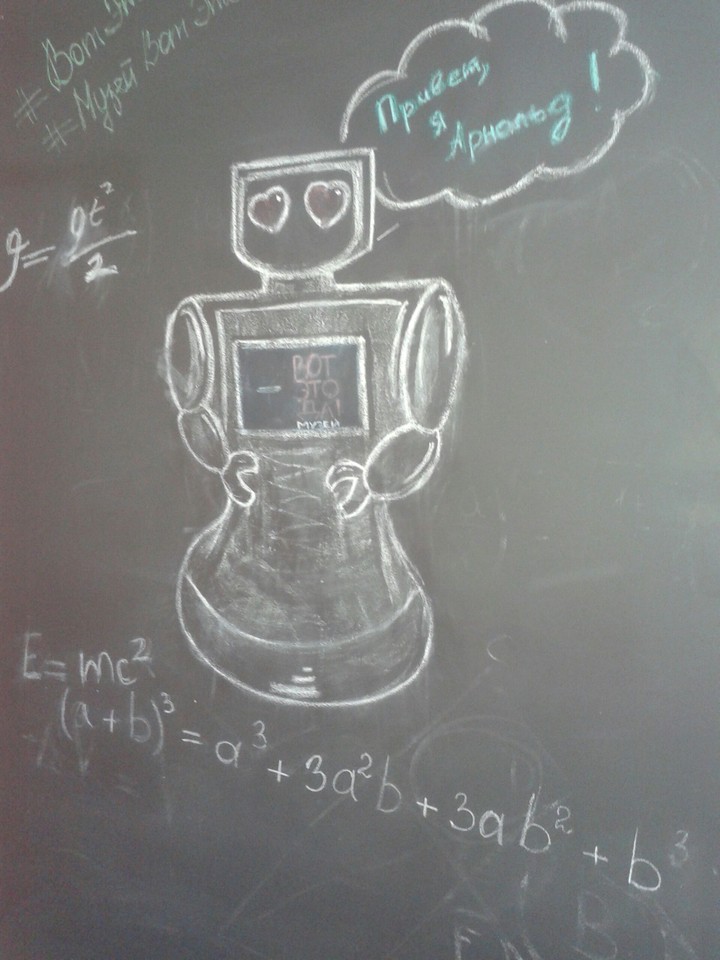 # Вот Эт
# Музей Вот Это
Привет,
я
Арнольд!
g = gt²/2
ВОТ
ЭТО
ДА!
МУЗЕЙ
E=mc²
(a+b)³ = a³ + 3a²b + 3ab² + b³